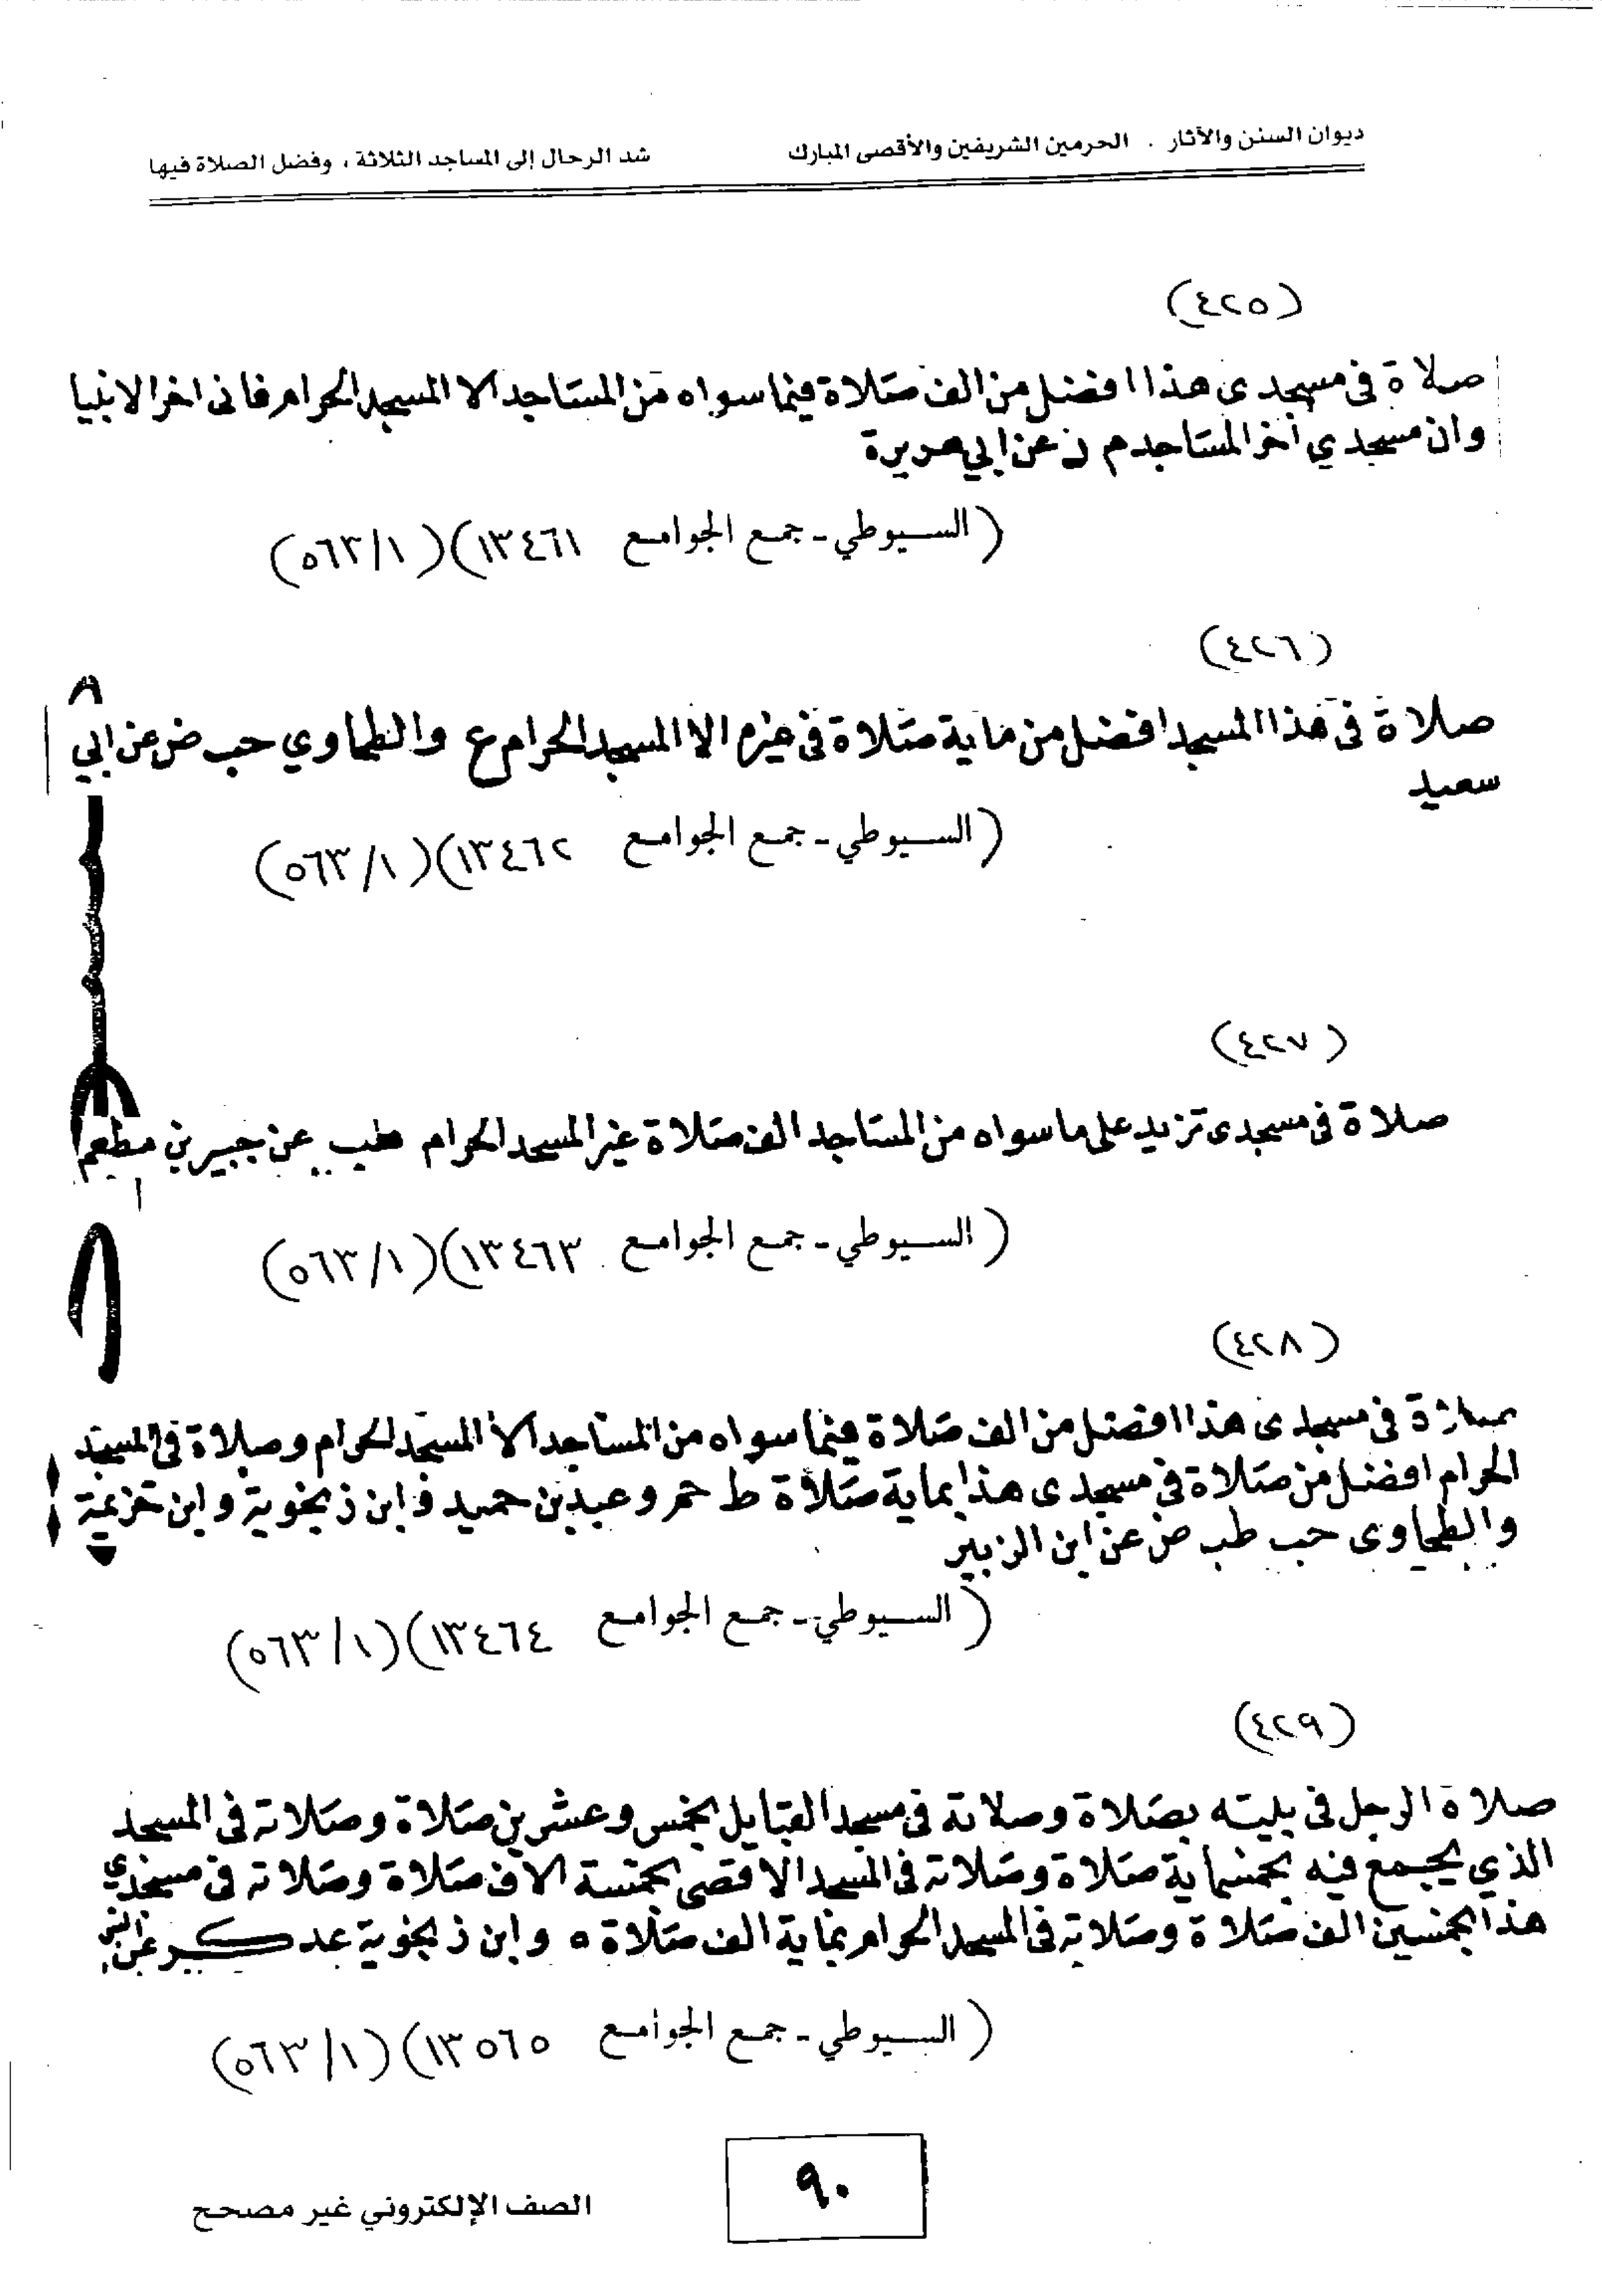 ديوان السنن والآثار . الحرمين الشريفين والأقصى المبارك شد الرحال إلى المساجد الثلاثة ، وفضل الصلاة فيها
(٤٢٥)
صلاة فى مسجدى هذا افضل من الف صلاة فيما سواه من المساجد الا المسجد الحرام فانى اخر الانبيا
وان مسجدي آخر المساجد م ن عن ابي هريرة
(السيوطي - جمع الجوامع ١٣٤٦١)(٥٦٣/١)
(٤٢٦)
صلاة فى هذا المسجد افضل من ماية صلاة فى غيره الا المسجد الحرام ع والطحاوي حب ض عن ابي
سعيد
(السيوطي - جمع الجوامع ١٣٤٦٢)(٥٦٣/١)
(٤٢٧)
صلاة فى مسجدى تزيد على ما سواه من المساجد الف صلاة غير المسجد الحرام طب عن جبير بن مطعم
(السيوطي - جمع الجوامع ١٣٤٦٣)(٥٦٣/١)
(٤٢٨)
صلاة فى مسجدى هذا افضل من الف صلاة فيما سواه من المساجد الا المسجد الحرام وصلاة فى المسجد
الحرام افضل من صلاة فى مسجدى هذا بماية صلاة ط حم وعبد بن حميد وابن زنجوية وابن خزيمة
والطحاوى حب طب ض عن ابن الزبير
(السيوطي - جمع الجوامع ١٣٤٦٤)(٥٦٣/١)
(٤٢٩)
صلاة الرجل فى بيته بصلاة وصلاته فى مسجد القبايل بخمس وعشرين صلاة وصلاته فى المسجد
الذي يجمع فيه بخمسماية صلاة وصلاته فى المسجد الاقصى بخمسة الاف صلاة وصلاته فى مسجدي
هذا بخمسين الف صلاة وصلاته فى المسجد الحرام بماية الف صلاة ه وابن زنجوية عد كر عن انس
(السيوطي - جمع الجوامع ١٣٥٦٥)(٥٦٣/١)
٩٠
الصف الإلكتروني غير مصحح